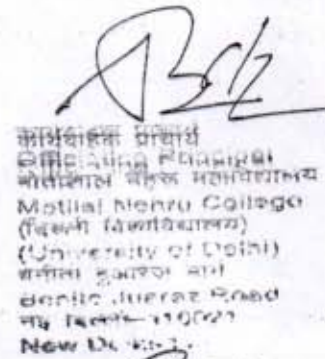 कार्यवाहक प्राचार्य
Officiating Principal
मोतीलाल नेहरू महाविद्यालय
Motilal Nehru College
(दिल्ली विश्वविद्यालय)
(University of Delhi)
बेनीतो हुआरेज मार्ग
Benito Juarez Road
नई दिल्ली-110021
New Delhi